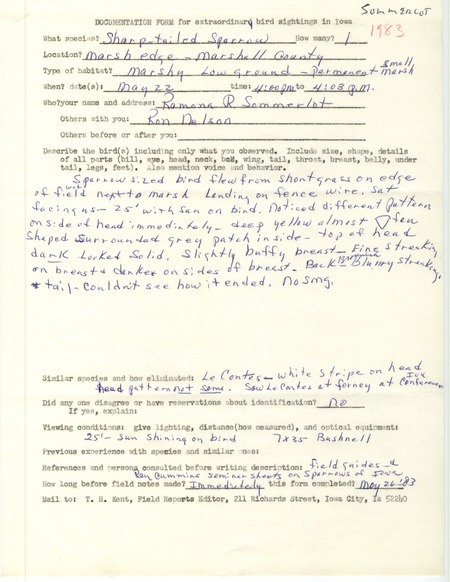 SOMMERLOT
DOCUMENTATION FORM for extraordinary bird sightings in Iowa
1983
What species? Sharp-tailed Sparrow How many? 1
Location? Marsh edge - Marshall County
Type of habitat? Marshy Low ground - permanent small marsh
When? date(s): May 22 time: 4:00pm to 4:08 p.m.
Who? your name and address: Ramona R Sommerlot
Others with you: Ron Nelson
Others before or after you:
Describe the bird(s) including only what you observed. Include size, shape, details
of all parts (bill, eye, head, neck, back, wing, tail, throat, breast, belly, under
tail, legs, feet). Also mention voice and behavior.
Sparrow sized bird flew from short grass on edge
of field next to marsh Landing on fence wire. Sat
facing us - 25' with sun on bird. Noticed different pattern
on side of head immediately - deep yellow almost
shaped surrounded grey patch inside - top of head
dark Looked Solid. Slightly buffy breast - Fine streaking
on breast & darker on sides of breast. Back - Brownish Blurry streaking
& tail - couldn't see how it ended. No song.
Similar species and how eliminated: Le Contes - white stripe on head
head pattern not same. Saw Le Contes at forney at IOU Conference
Did any one disagree or have reservations about identification? No
If yes, explain:
Viewing conditions: give lighting, distance(how measured), and optical equipment:
25' - Sun Shining on bird 7x35 Bushnell
Previous experience with species and similar ones:
References and persons consulted before writing description: field guides - &
Ken Cummins seminar sheets on Sparrows of Iowa
How long before field notes made? Immediately this form completed? May 26 '83
Mail to: T. H. Kent, Field Reports Editor, 211 Richards Street, Iowa City, Ia 52240